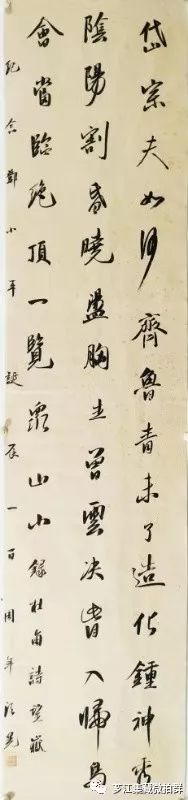 岱宗夫如何齊魯青未了造化鍾神秀
陰陽割昏曉盪胸生曾雲决眥入歸鳥
會當臨絶頂一覽衆山小錄杜甫詩望嶽
紀念鄧小平誕辰一百周年
芗江集藏微拍群